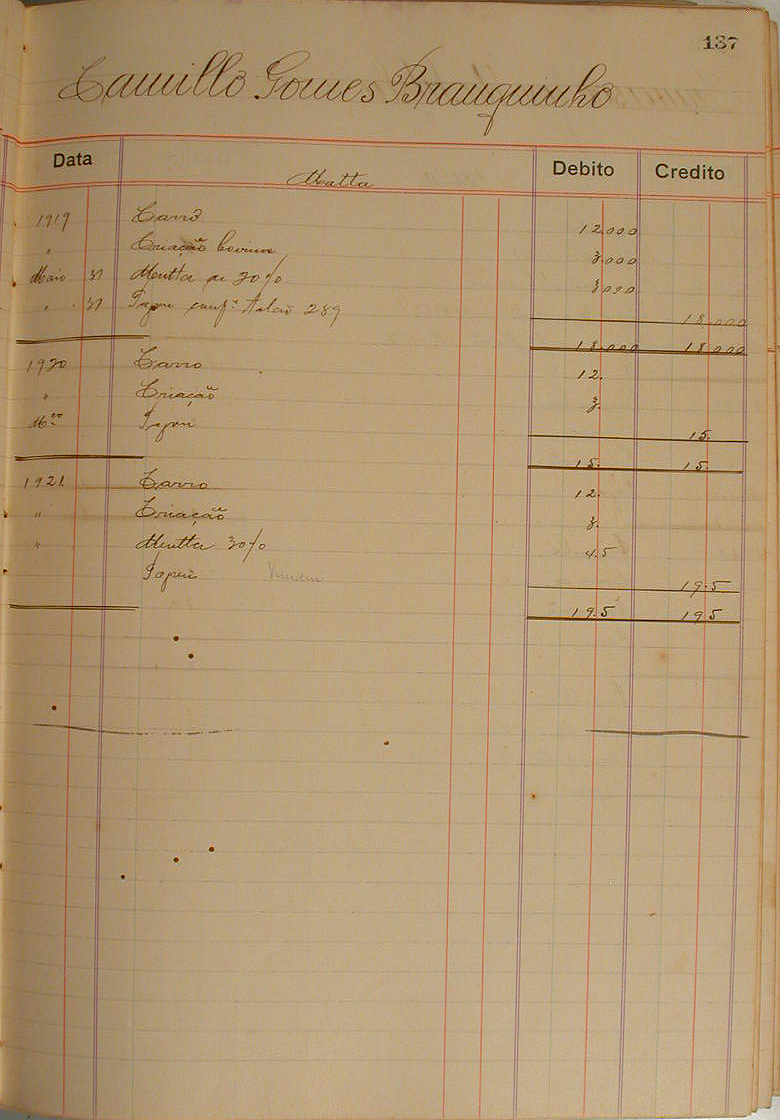 137
Camillo Gomes Branquinho
Data Debito Credito
Matta
1919 Carro 12.000
" Criação bovina 3.000
Maio 31 Multa de 20% 3.000
" 31 Pagou conf.e Talão 289 18.000
18.000 18.000
1920 Carro 12.
" Criação 3.
M.ço Pagou 15.
15. 15.
1921 Carro 12.
" Criação 3.
" Multa 30% 4.5
Pagou 19.5
19.5 19.5